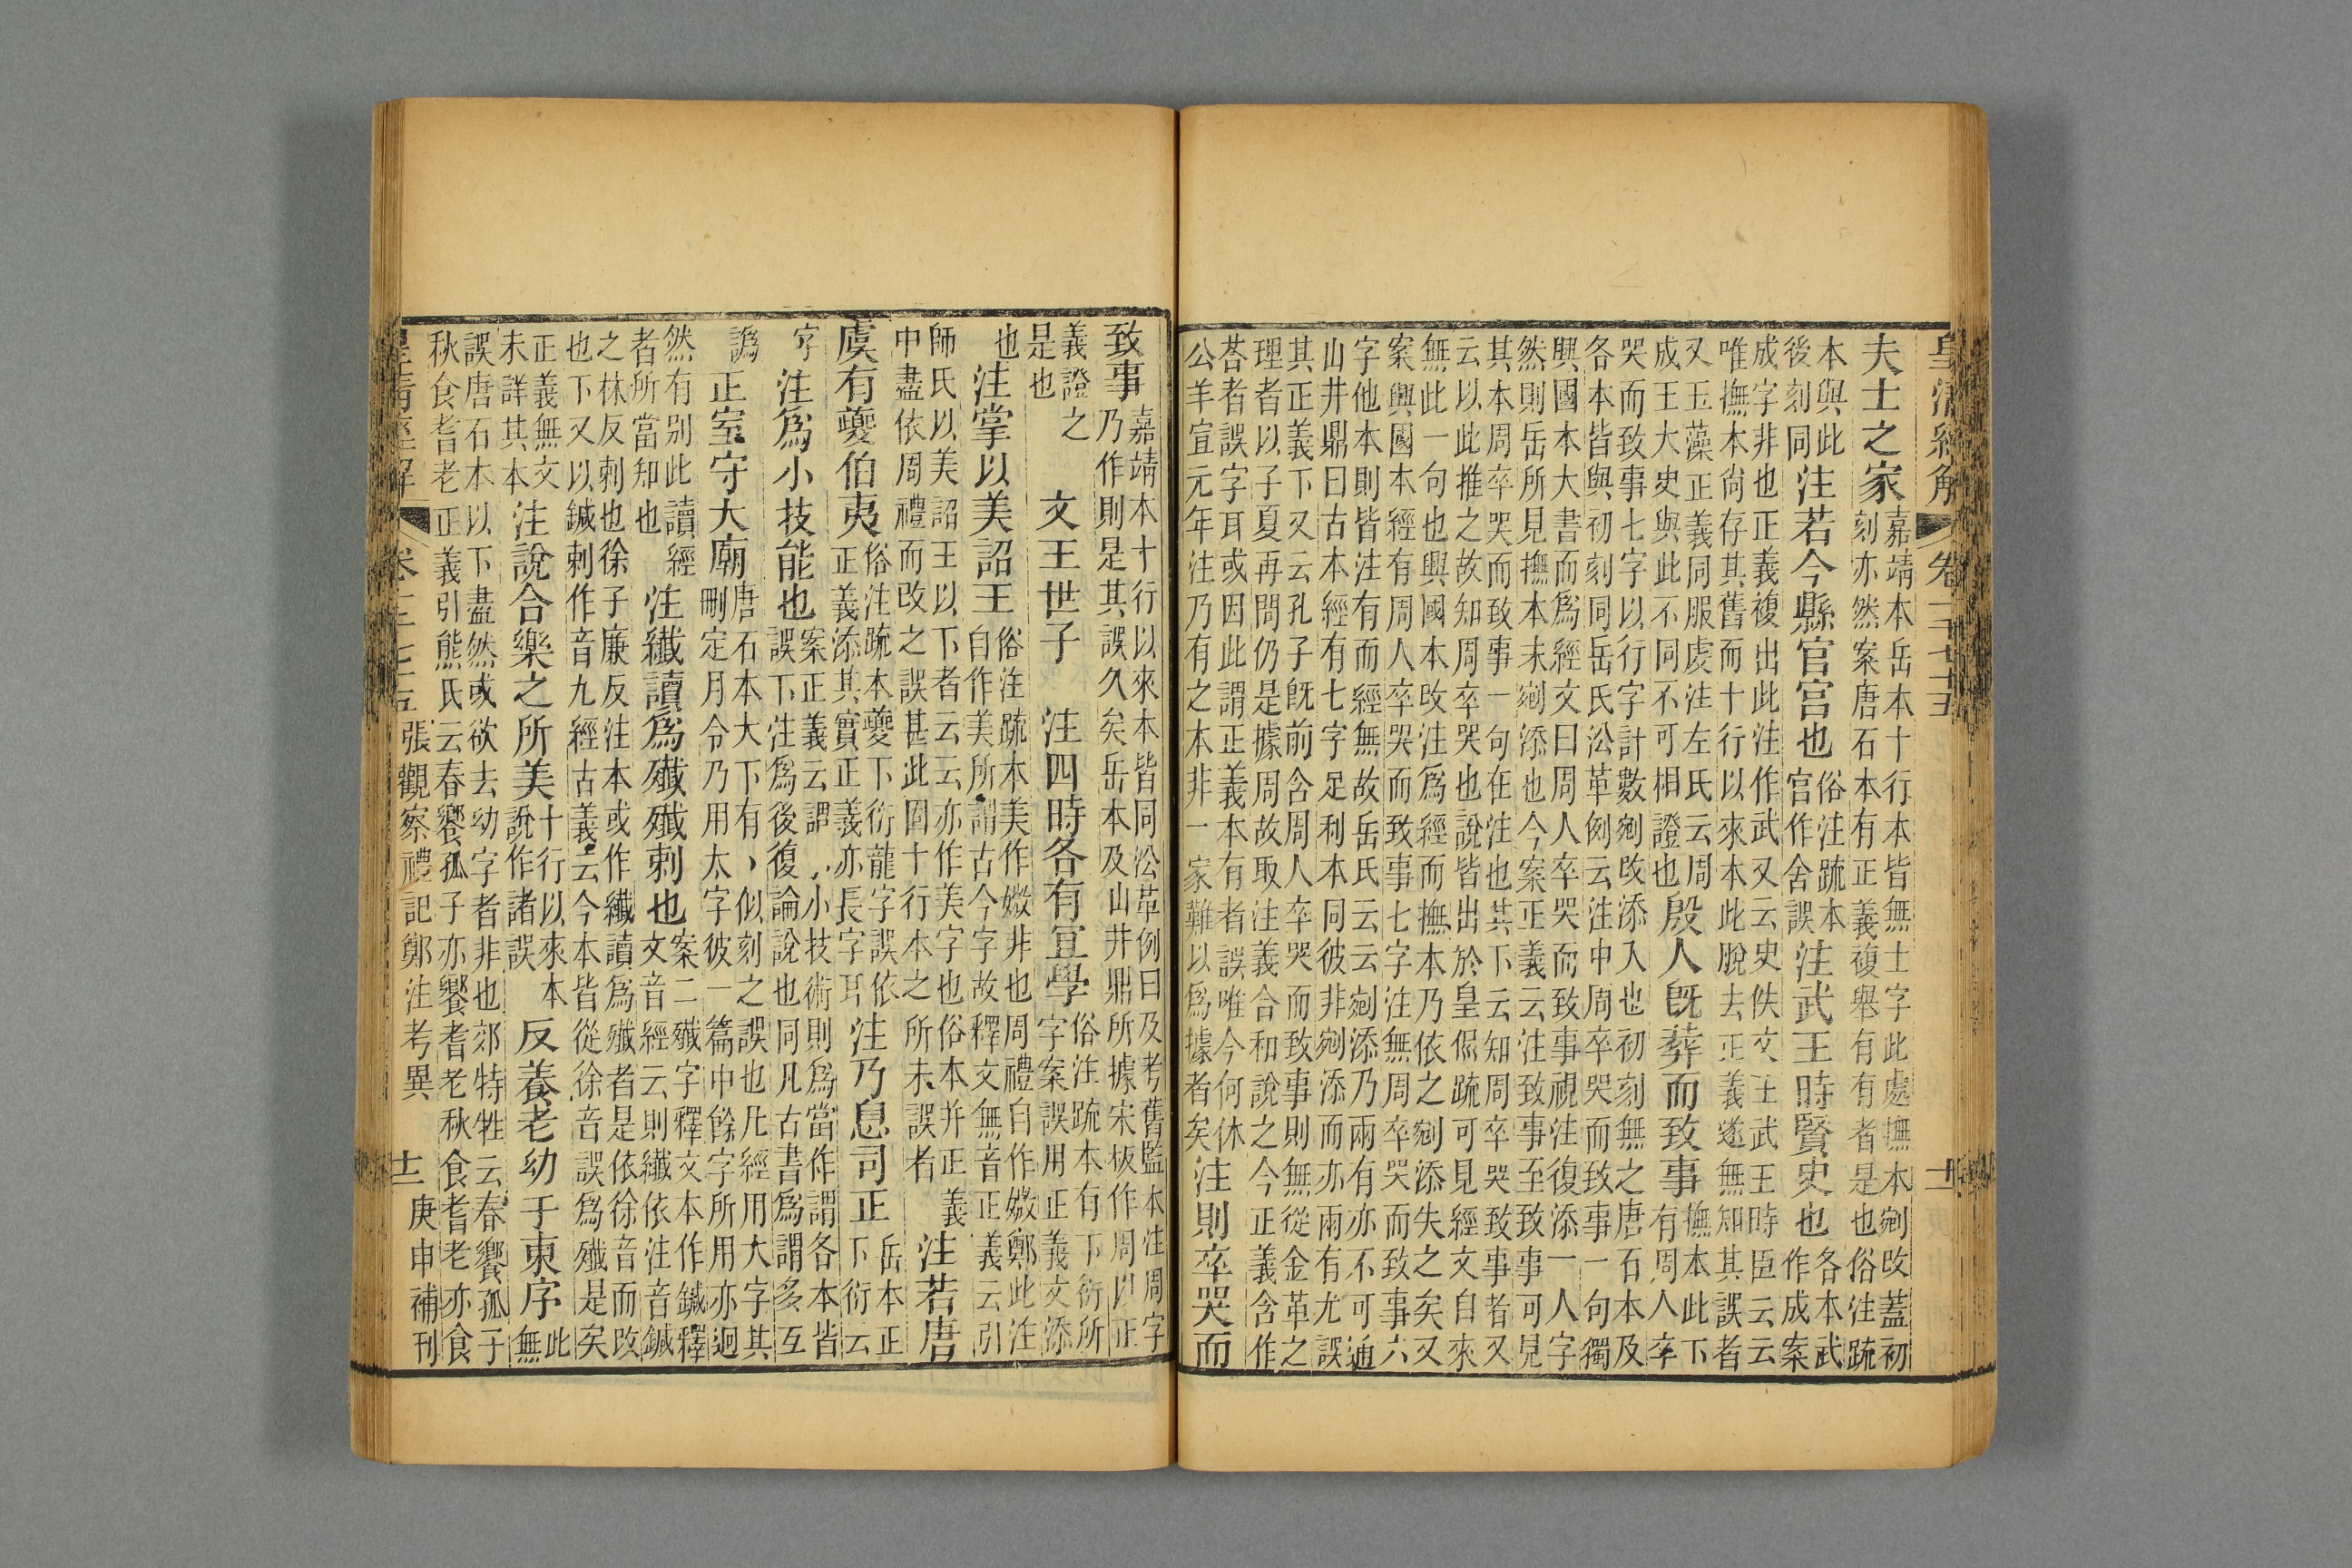 皇清經解 卷一千七十五 十一
夫士之家 嘉靖本岳本十行本皆無士字此處撫本剜改蓋初
刻亦然案唐石本有正義複舉有有者是也俗注疏
本與此
後刻同 注若今縣官宮也 俗注疏本
官作舍誤 注武王時賢史也 各本武
作成案
成字非也正義複出此注作武又云史佚文王武王時臣云云
唯撫本尚存其舊而十行以來本此脫去正義遂無知其誤者
又玉藻正義同服虔注左氏云周
成王大史與此不同不可相證也 殷人既葬而致事 撫本此下
有周人卒
哭而致事七字以行字計數剜改添入也初刻無之唐石本及
各本皆與初刻同岳氏沿革例云注中周卒哭而致事一句獨
興國本大書而為經文曰周人卒哭而致事視注復添一人字
然則岳所見撫本未剜添也今案正義云注致事至致事可見
其本周卒哭而致事一句在注也其下云知周卒哭致事者又
云以此推之故知周卒哭也說皆出於皇侃疏可見經文自來
無此一句也興國本改注為經而撫本乃依之剜添失之矣又
案興國本經有周人卒哭而致事七字注無周卒哭而致事六
字他本則皆注有而經無故岳氏云云剜添乃兩有亦不可通
山井鼎曰古本經有七字足利本同彼非剜添而亦兩有尤誤
其正義下又云孔子既前含周人卒哭而致事則無從金革之
理者以子夏再問仍是據周故取注義合和說之今正義含作
荅者誤字耳或因此謂正義本有者誤唯今何休
公羊宣元年注乃有之本非一家難以為據者矣 注則卒哭而
致事 嘉靖本十行以來本皆同沿革例曰及考舊監本注周字
乃作則是其誤久矣岳本及山井鼎所據宋板作周以正
義證之
是也 文王世子 注四時各有宜學 俗注疏本有下衍所
字案誤用正義文添
也 注掌以美詔王 俗注疏本美作媺非也周禮自作媺鄭此注
自作美所謂古今字故釋文無音正義云引
師氏以美詔王以下者云云亦作美字也俗本并正義
中盡依周禮而改之誤甚此圍十行本之所未誤者 注若唐
虞有夔伯夷 俗注疏本夔下衍龍字誤依
正義添其實正義亦長字耳 注乃息司正 岳本正
下衍云
字 注為小技能也 案正義云謂小技術則為當作謂各本皆
誤下注為後復論說也同凡古書為謂多互
譌 正室守大廟 唐石本大下有丶似刻之誤也凡經用大字其
刪定月令乃用太字彼一篇中餘字所用亦迥
然有別此讀經
者所當知也 注纖讀為殲殲刺也 案二殲字釋文本作鍼釋
文音經云則纖依注音鍼
之林反刺也徐子廉反注本或作纖讀為殲者是依徐音而改
也下又以鍼刺作音九經古義云今本皆從徐音誤為殲是矣
正義無文
未詳其本 注說合樂之所美 十行以來本
說作諸誤 反養老幼于東序 此
無
誤唐石本以下盡然或欲去幼字者非也郊特牲云春饗孤子
秋食耆老正義引熊氏云春饗孤子亦饗耆老秋食耆老亦食
皇清經解 卷一千七十五 張觀察禮記鄭注考異 十二 庚申補刊